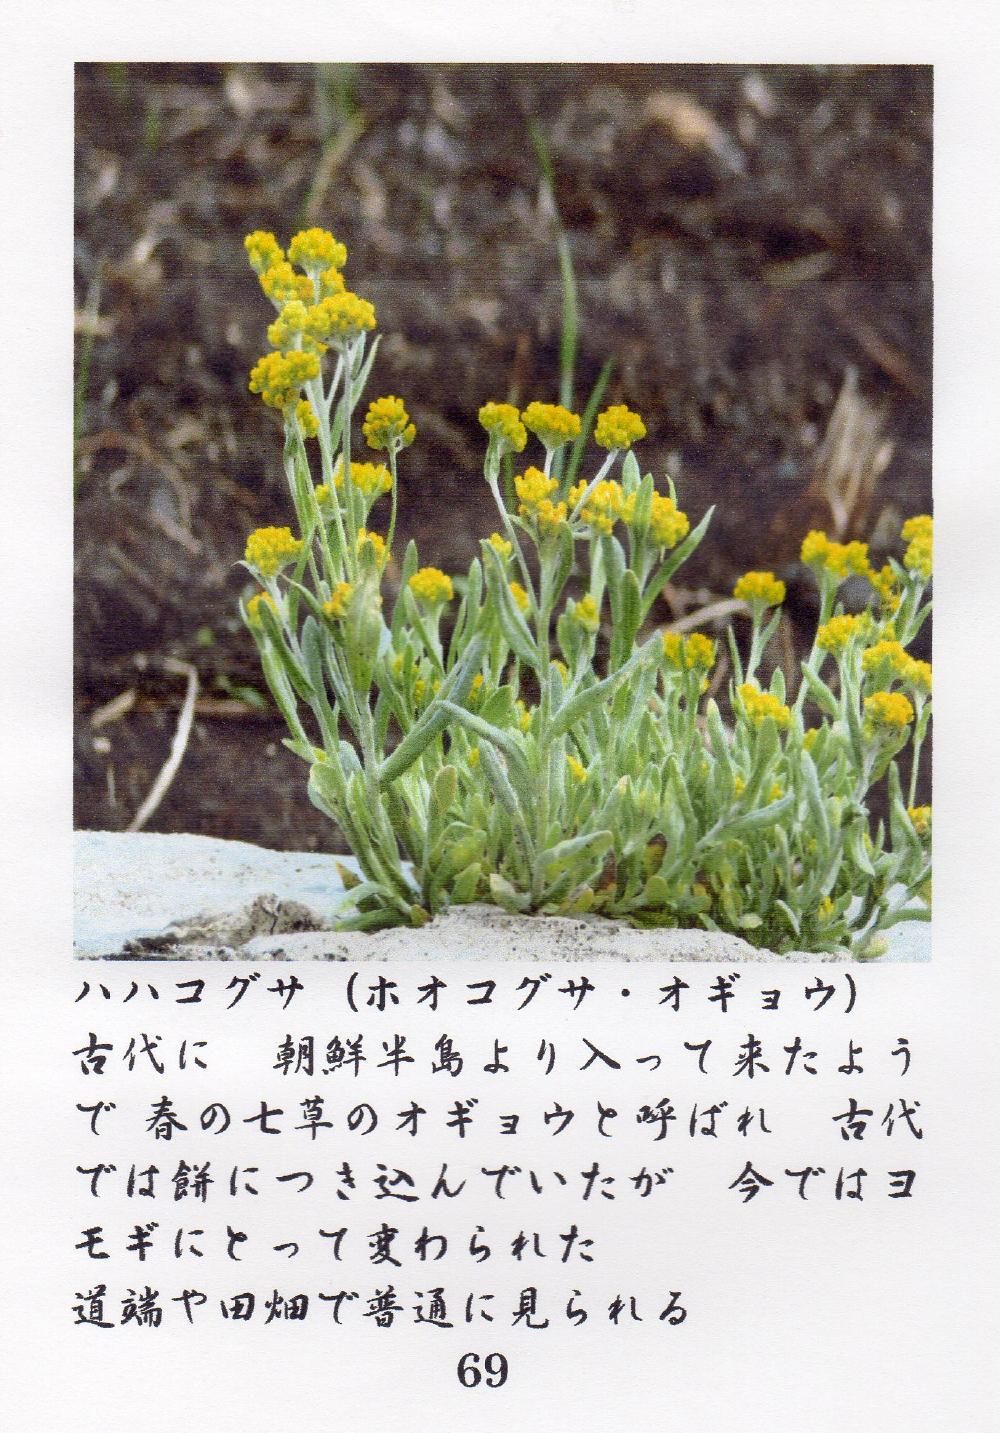 ハハコグサ（ホオコグサ・オギョウ）
古代に　朝鮮半島より入って来たよう
で 春の七草のオギョウと呼ばれ　古代
では餅につき込んでいたが　今ではヨ
モギにとって変わられた
道端や田畑で普通に見られる
69